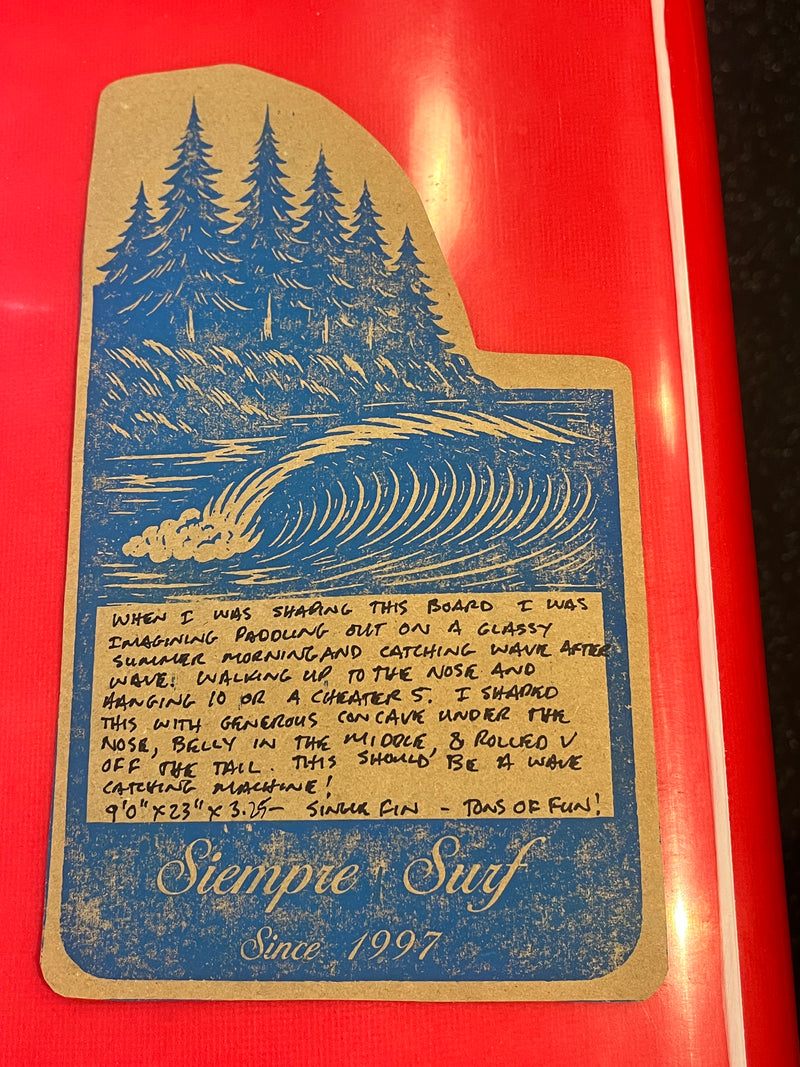 WHEN I WAS SHAPING THIS BOARD I WAS
IMAGINING PADDLING OUT ON A GLASSY
SUMMER MORNING AND CATCHING WAVE AFTER
WAVE. WALKING UP TO THE NOSE AND
HANGING 10 OR A CHEATER 5. I SHAPED
THIS WITH GENEROUS CONCAVE UNDER THE
NOSE, BELLY IN THE MIDDLE, & ROLLED V
OFF THE TAIL. THIS SHOULD BE A WAVE
CATCHING MACHINE!
9'0" X 23" X 3.25 - SINGLE FIN - TONS OF FUN!
Siempre Surf
Since 1997